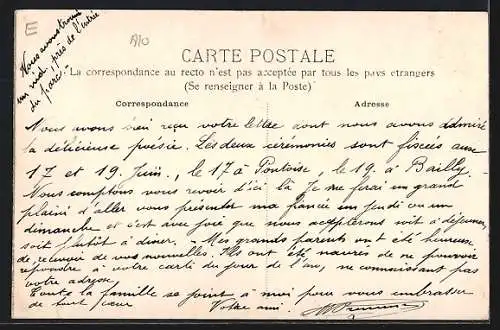 E
A10
Nous avons trouvé
un nid, près de l'entrée
du parc. -
CARTE POSTALE
La correspondance au recto n'est pas acceptée par tous les pays etrangers
(Se renseigner à la Poste)
Correspondance
Adresse
Nous avons bien reçu votre lettre dont nous avons admiré
la délicieuse poésie. Les deux cérémonies sont fixées aux
17 et 19 Juin, le 17 à Pontoise, le 19 à Bailly. -
Nous comptons vous revoir d'ici là. Je me ferai un grand
plaisir d'aller vous présenter ma fiancée un jeudi ou un
dimanche et c'est avec joie que nous accepterons soit à déjeuner,
soit plutôt à diner. - Mes grands parents ont été heureux
de recevoir de vos nouvelles. Ils ont été navrés de ne pouvoir
répondre à votre carte du jour de l'an, ne connaissant pas
votre adresse.
Toute la famille se joint à moi pour vous embrasser
de tout cœur
Votre ami.